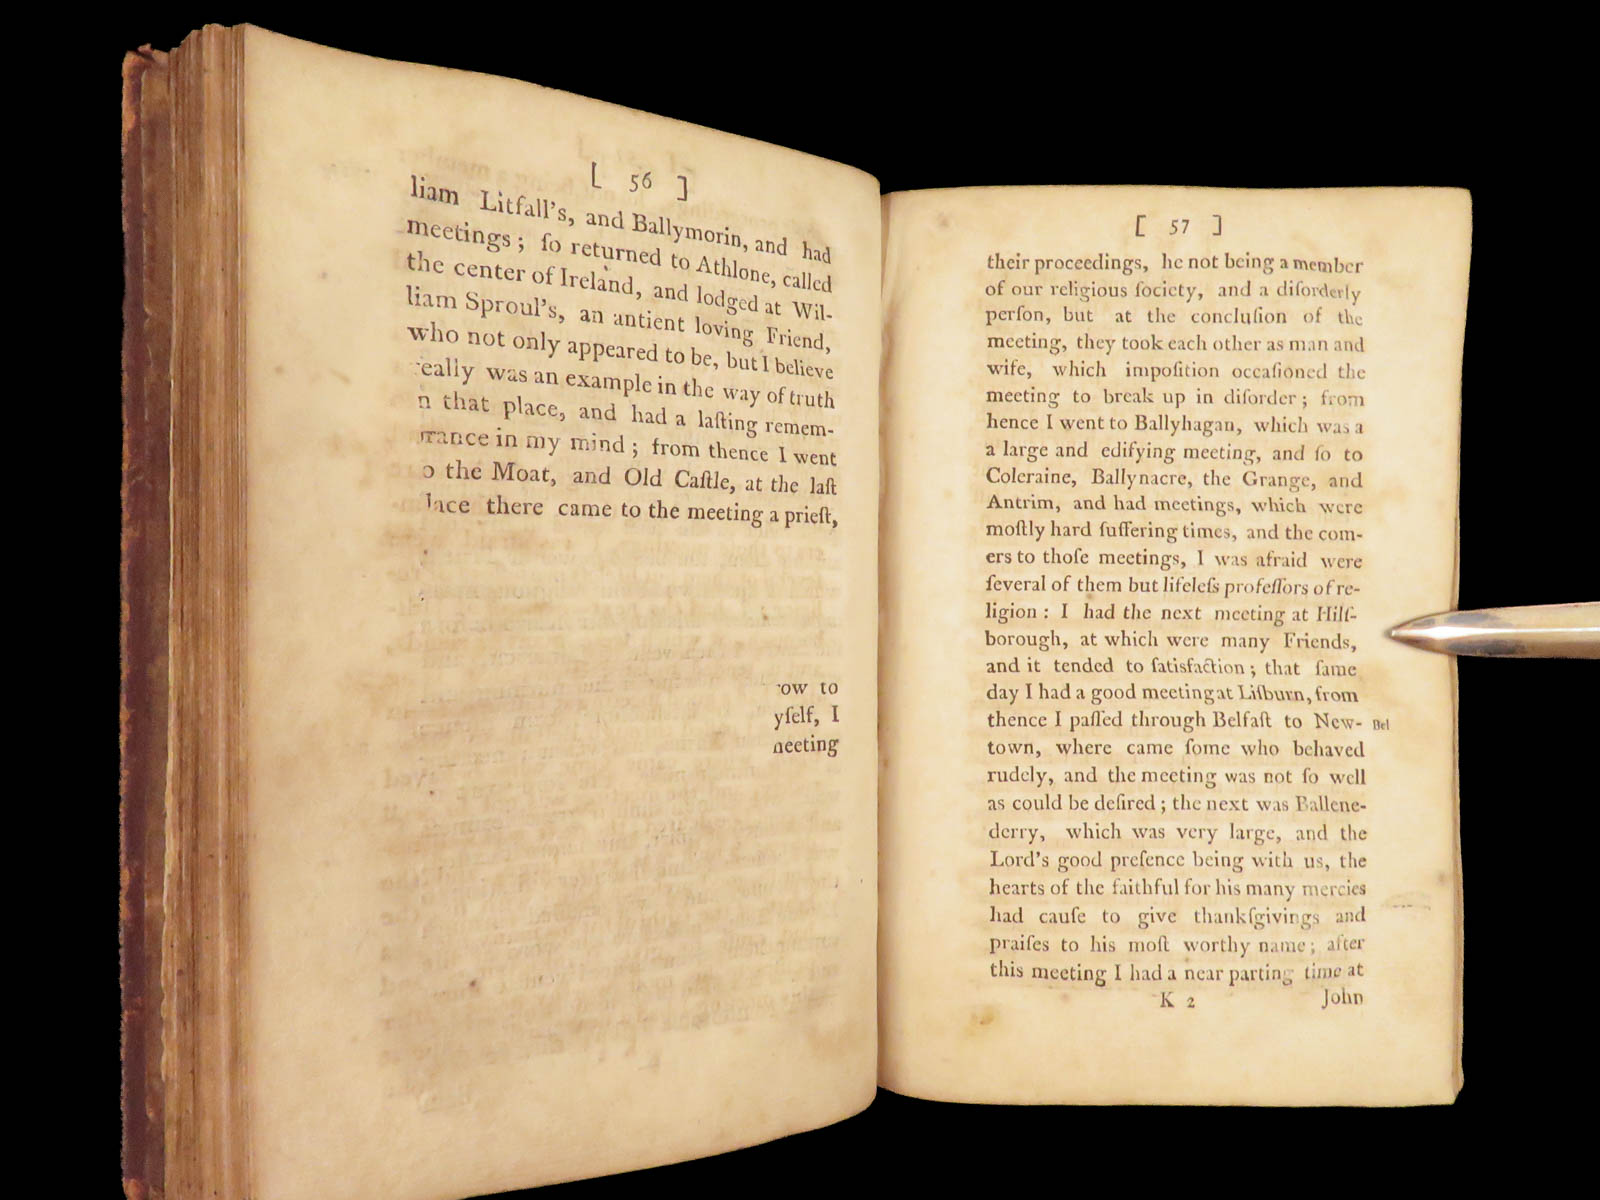 [ 56 ]
liam Litfall's, and Ballymorin, and had
meetings; ſo returned to Athlone, called
the center of Ireland, and lodged at Wil-
liam Sproul's, an antient loving Friend,
who not only appeared to be, but I believe
eally was an example in the way of truth
n that place, and had a laſting remem-
rance in my mind; from thence I went
o the Moat, and Old Caſtle, at the laſt
lace there came to the meeting a prieſt,
ow to
yſelf, I
neeting
[ 57 ]
their proceedings, he not being a member
of our religious ſociety, and a diſorderly
perſon, but at the concluſion of the
meeting, they took each other as man and
wife, which impoſition occaſioned the
meeting to break up in diſorder; from
hence I went to Ballyhagan, which was a
a large and edifying meeting, and ſo to
Coleraine, Ballynacre, the Grange, and
Antrim, and had meetings, which were
moſtly hard ſuffering times, and the com-
ers to thoſe meetings, I was afraid were
ſeveral of them but lifeleſs profeſſors of re-
ligion: I had the next meeting at Hilſ-
borough, at which were many Friends,
and it tended to ſatisfaction; that ſame
day I had a good meeting at Liſburn, from
thence I paſſed through Belfaſt to New- Bel
town, where came ſome who behaved
rudely, and the meeting was not ſo well
as could be deſired; the next was Ballene-
derry, which was very large, and the
Lord's good preſence being with us, the
hearts of the faithful for his many mercies
had cauſe to give thankſgivings and
praiſes to his moſt worthy name; after
this meeting I had a near parting time at
K 2 John